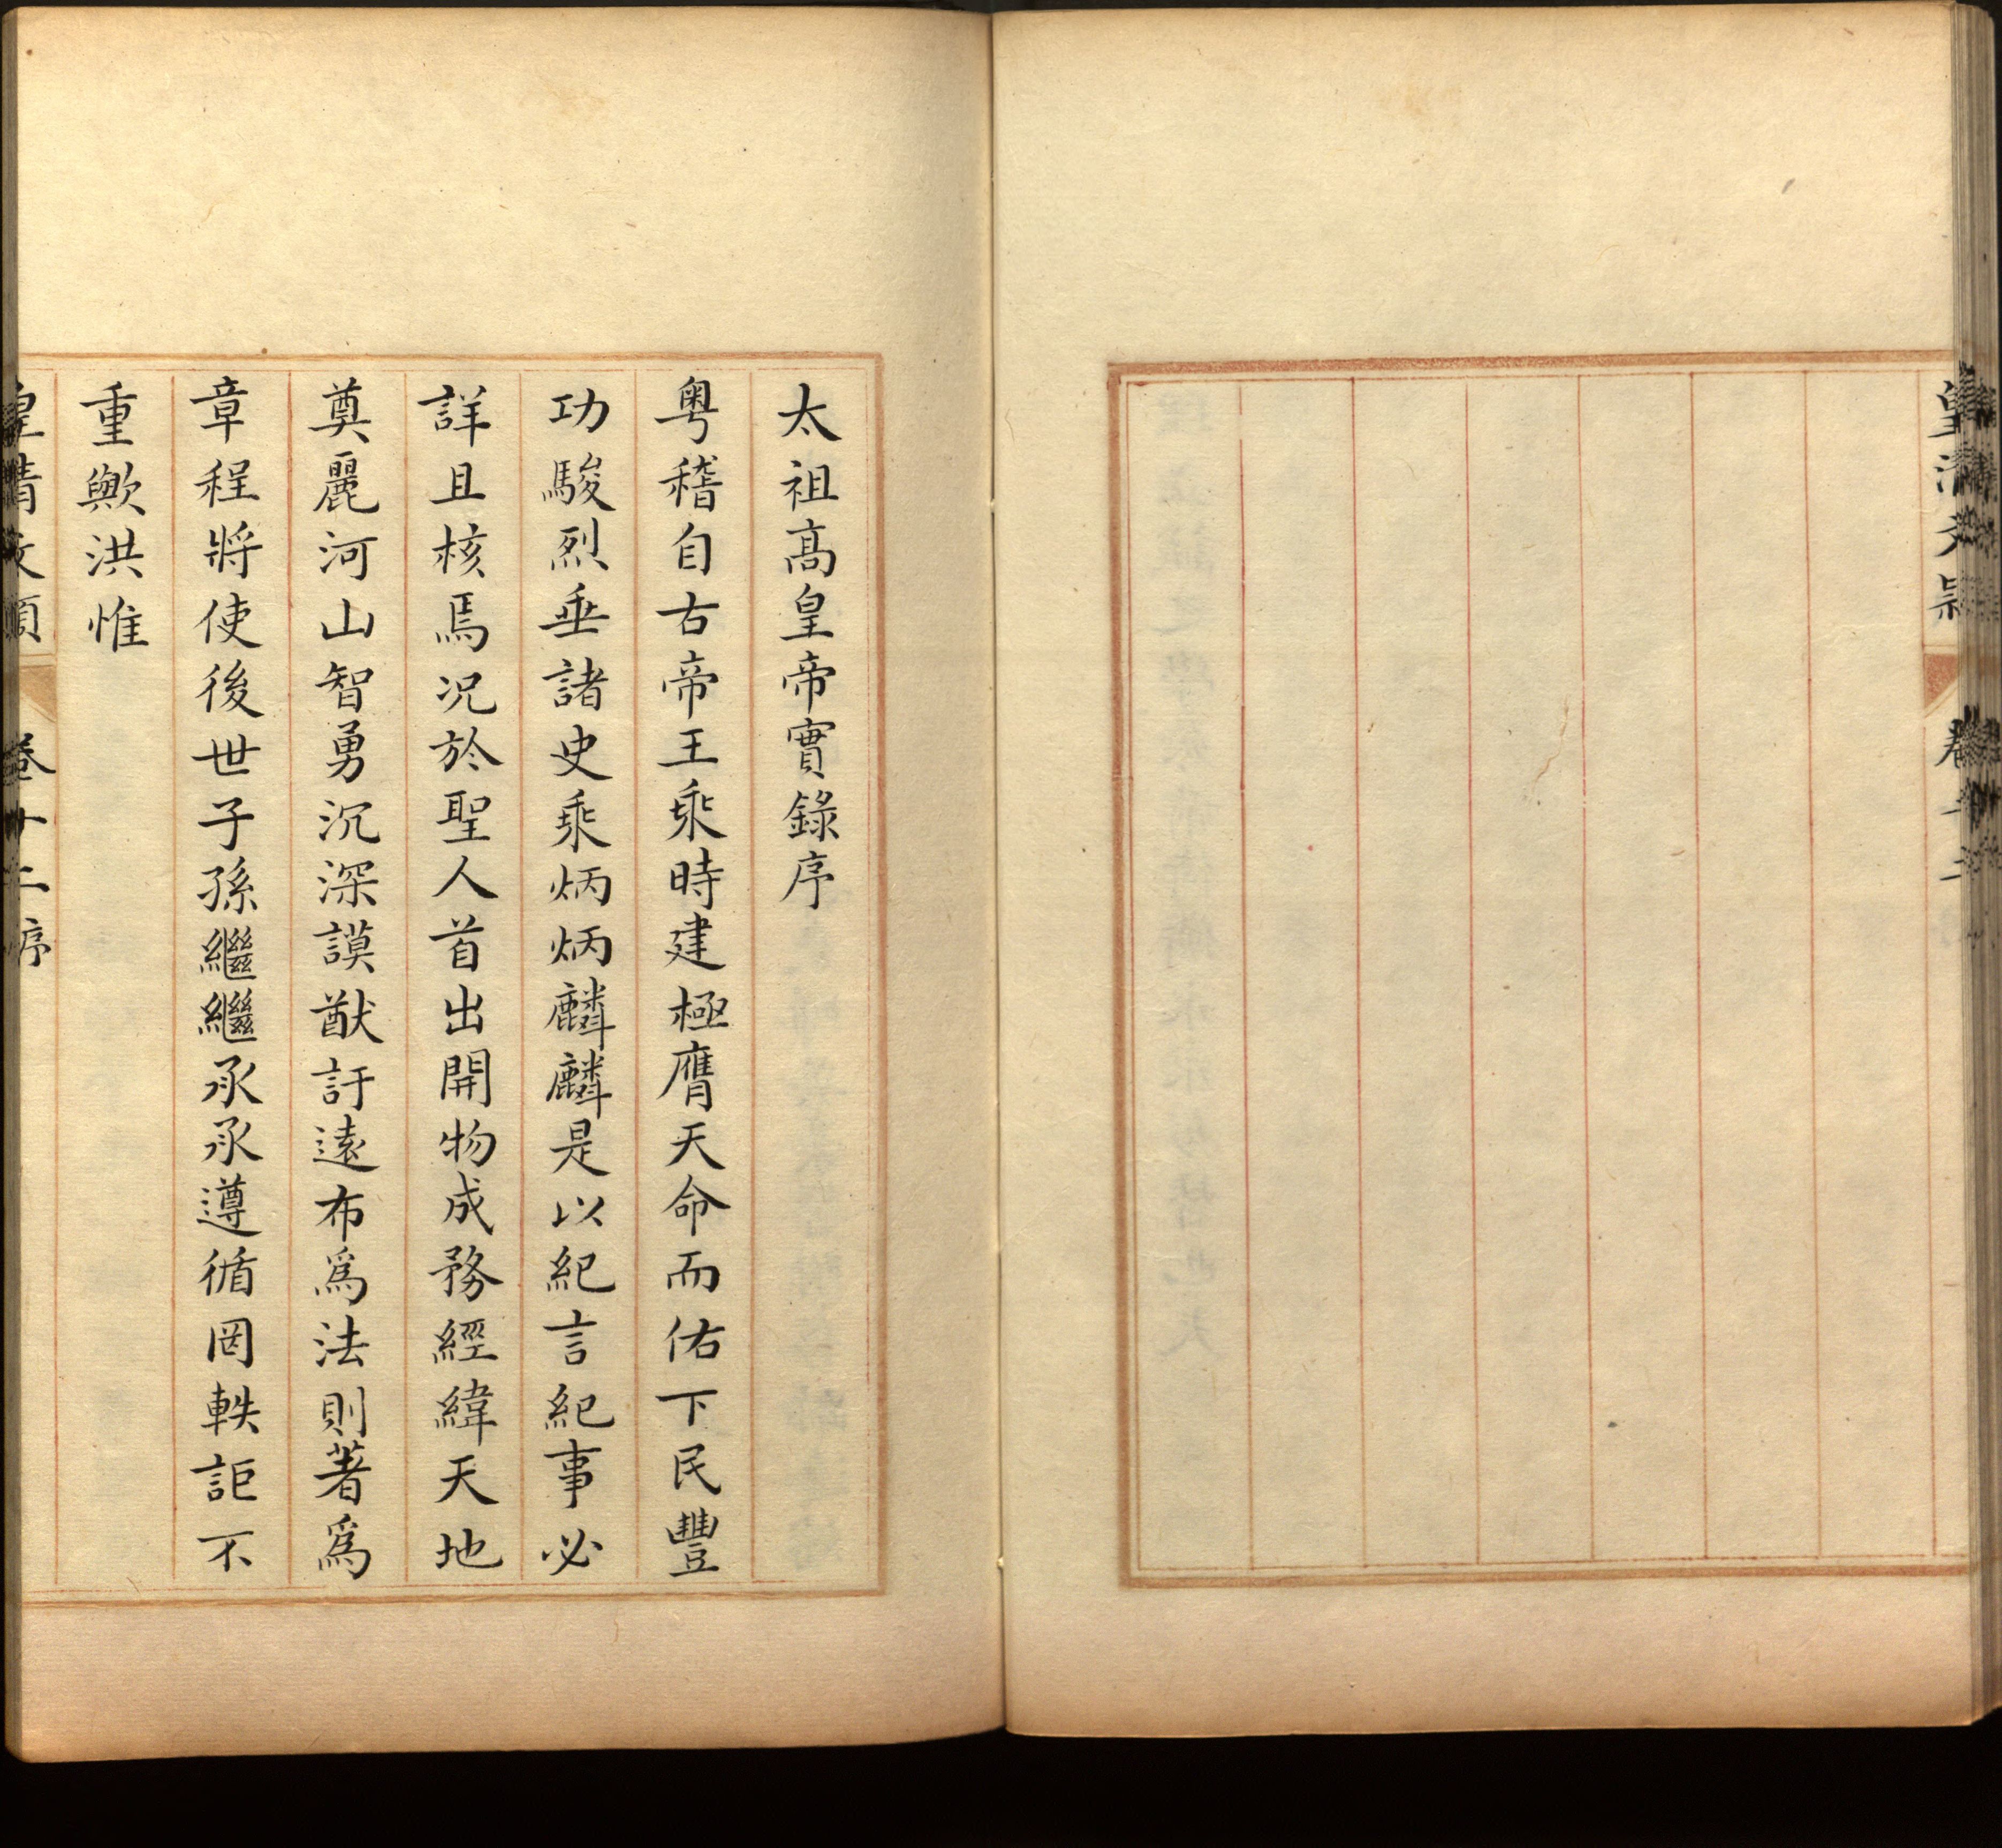 皇清文穎 卷十二
太祖高皇帝實錄序
粵稽自古帝王乘時建極膺天命而佑下民豐
功駿烈垂諸史乘炳炳麟麟是以紀言紀事必
詳且核焉況於聖人首出開物成務經緯天地
奠麗河山智勇沉深謨猷訏遠布爲法則著爲
章程將使後世子孫繼繼承承遵循罔軼詎不
重歟洪惟
皇清文穎 卷十二序